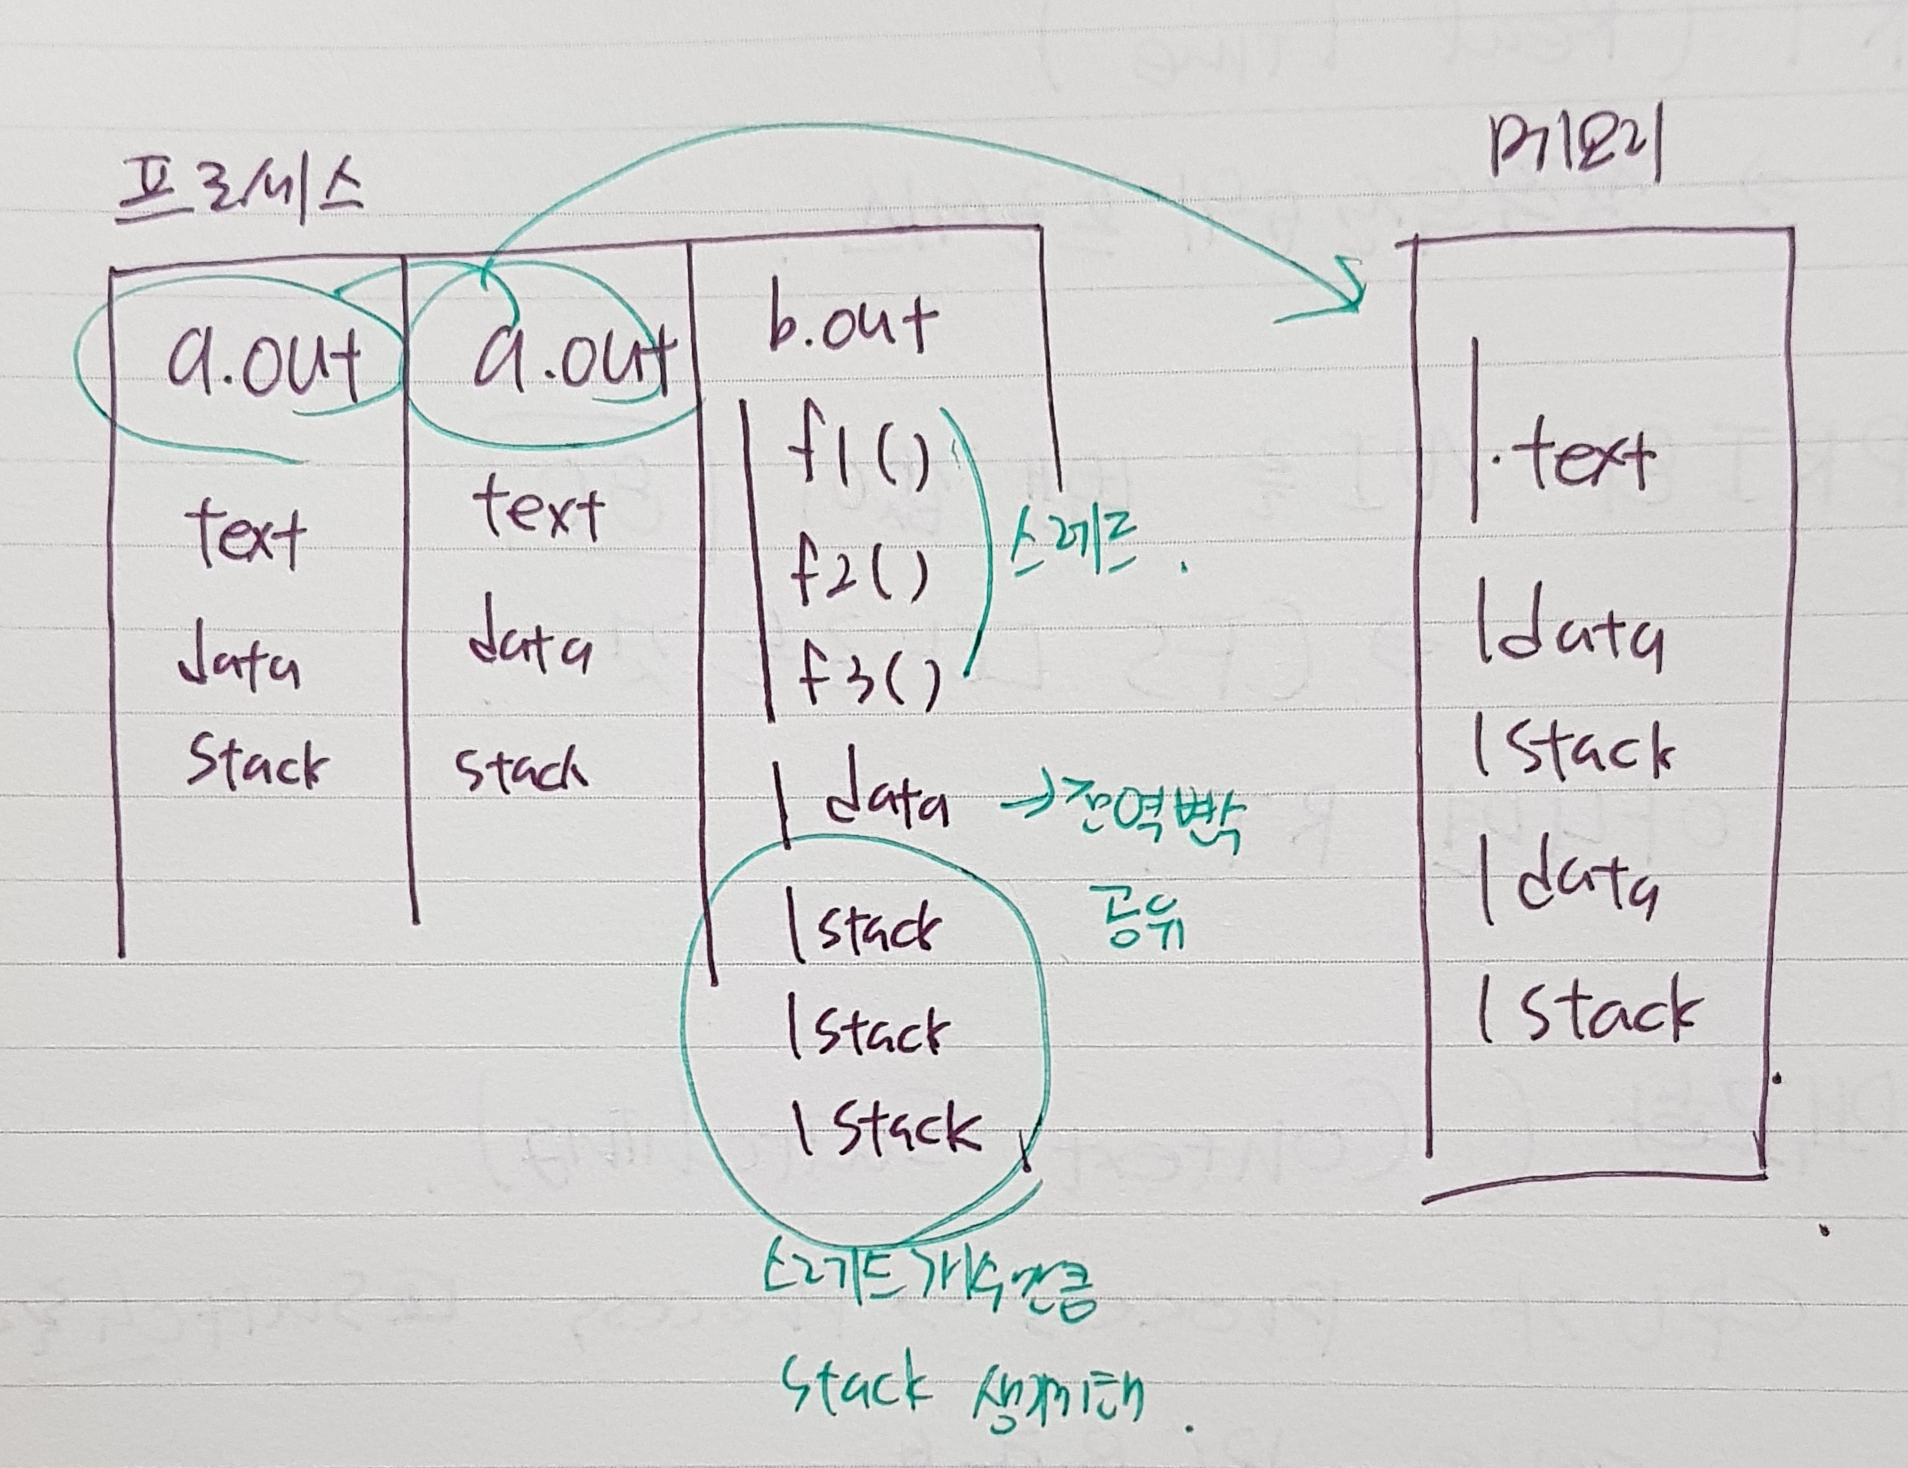 프로세스
메모리
a.out
text
data
stack
a.out
text
data
stack
b.out
f1()
f2()
f3()
스레드.
data → 전역변수
공유
stack
stack
stack
스레드 개수만큼
stack 생성
.text
data
stack
data
stack